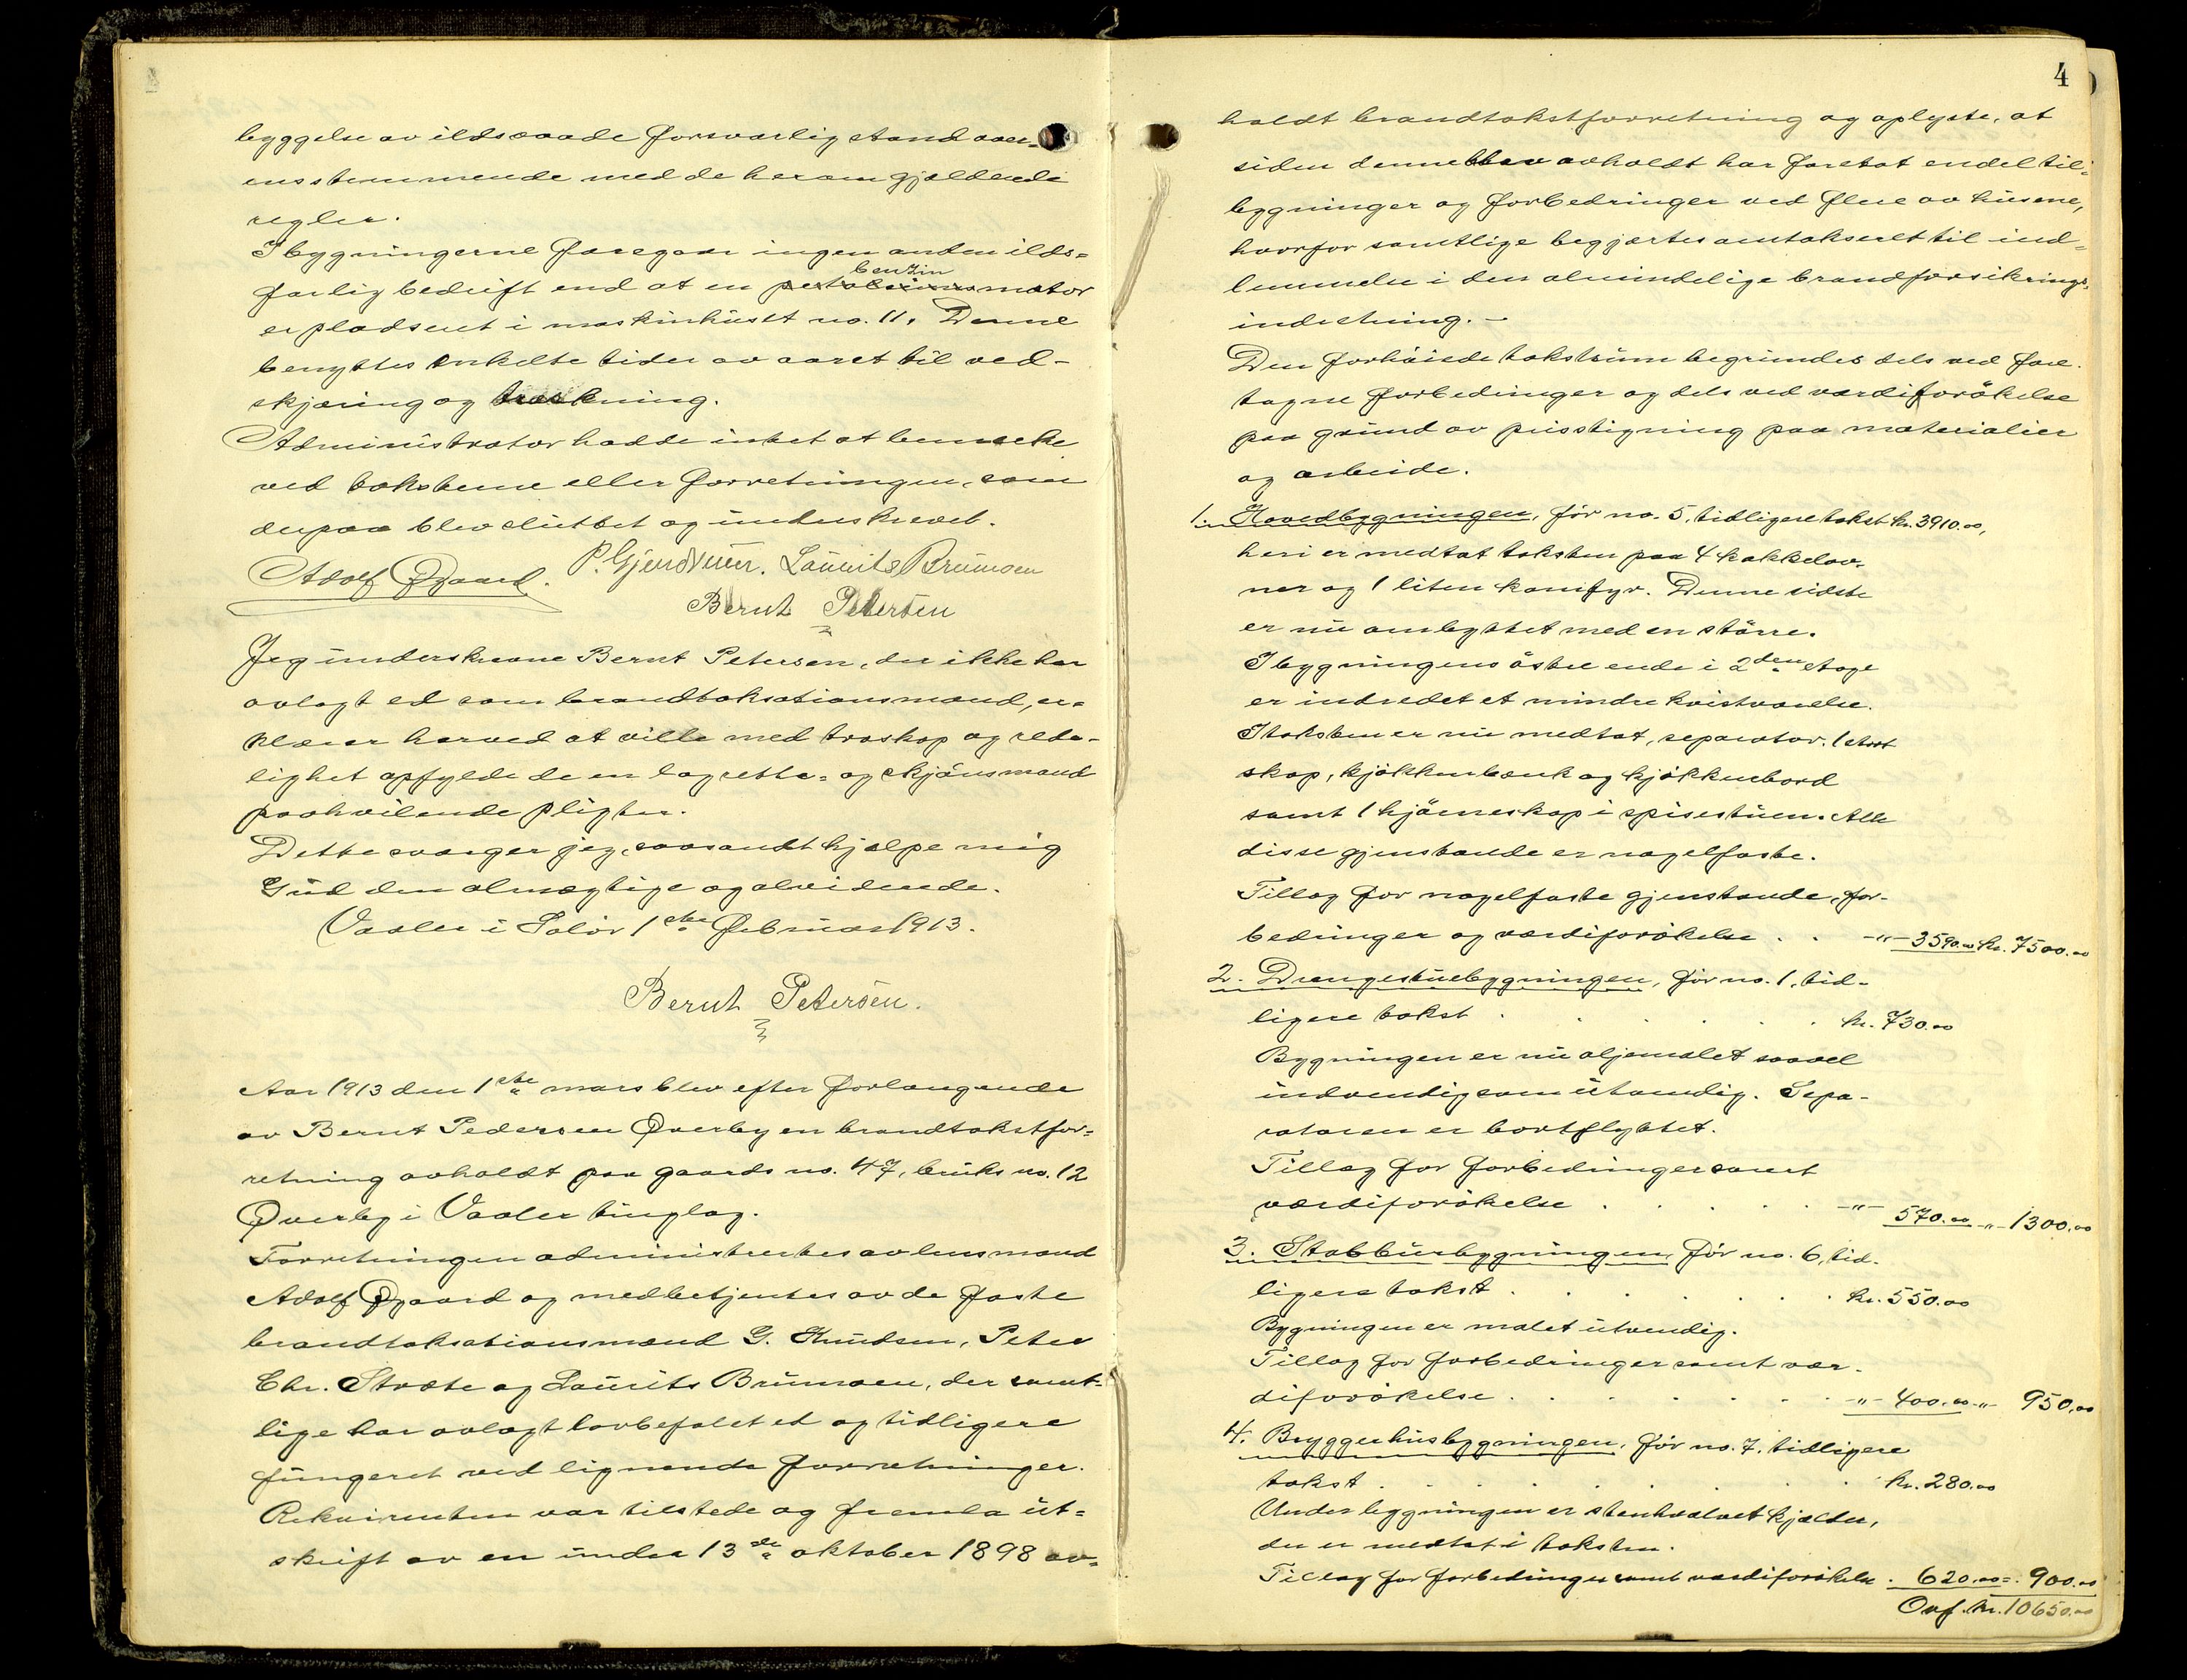 byggelse av ildsvaade forsvarlig stand over-
ensstemmende med de herom gjældende
regler.
I bygningerne foregaar ingen anden ilds=
benzin
farlig bedrift end at en petoleums motor
er pladseret i maskinhuset no. 11. Denne
benyttes enkelte tider av aaret til ved-
skjæring og træskning.
Administrator hadde intet at bemerke
ved taksterne eller forretningen, som
derpaa blev sluttet og underskrevet.
Adolf Øgaard. P. Gjendveen. Laurits Brunsen
Bernt Petersen
Jeg underskrevne Bernt Petersen, der ikke har
avlagt ed som brandtaksationsmand, er=
klærer herved at ville med troskap og rede-
lighet opfylde de en lagrette= og skjönsmand
paahvilende pligter.
Dette sværger jeg, saasandt hjælpe mig
Gud den almægtige og alvidende.
Vaaler i Solör 1ste Februar 1913.
Bernt Petersen.
Aar 1913 den 1ste mars blev efter forlangende
av Bernt Pedersen Øverby en brandtakstfor=
retning avholdt paa gaards no. 47, bruks no. 12
Øverby i Vaaler tinglag.
Forretningen administrertes av lensmand
Adolf Øgaard og medbetjentes av de faste
brandtaksationsmænd G. Knudsen, Peter
Chr. Stræte og Laurits Brunsen, der samt=
lige har avlagt lovbefalet ed og tidligere
fungeret ved lignende forretninger.
Rekvirenten var tilstede og fremla ut=
skrift av en under 13de oktober 1898 av=
4
holdt brandtakstforretning og oplyste, at
siden denne blev avholdt har foretat endel til=
bygninger og forbedringer ved flere av husene,
hvorfor samtlige begjærtes omtakseret til ind=
lemmelse i den almindelige brandforsikrings=
indretning. -
Den forhöiede takstsum begrundes dels ved fore-
tagne forbedringer og dels ved værdiforökelse
paa grund av prisstigning paa materialier
og arbeide.
1. Hovedbygningen, för no. 5, tidligere takst kr. 3910.00,
heri er medtat taksten paa 4 kakkelov-
ner og 1 liten komfyr. Denne sidste
er nu ombyttet med en större.
I bygningens östre ende i 2den etage
er indredet et mindre kvistværelse.
I taksten er nu medtat, separator, 1 stort
skap, kjökkenbænk og kjökkenbord
samt 1 hjörneskap i spisestuen. Alle
disse gjenstande er nagelfaste.
Tillæg for nagelfaste gjenstande, for-
bedringer og værdiforökelse . . -"- 3590.00 kr. 7500.00
2. Drengestuebygningen, för no. 1, tid-
ligere takst . . . . . kr. 730.00
Bygningen er nu oljemalet saavel
indvendig som utvendig. Sepa-
ratoren er bortflyttet.
Tillæg for forbedringer samt
værdiforökelse . . . . . -"- 570.00 -"- 1300.00
3. Stabbursbygningen, för no. 6, tid-
ligere takst . . . . . kr. 550.00
Bygningen er malet utvendig.
Tillæg for forbedringer samt vær-
diforökelse . . . . . -"- 400.00 -"- 950.00
4. Bryggerhusbygningen, för no. 7, tidligere
takst . . . . . kr. 280.00
Under bygningen er stenhvælvet kjælder,
der er medtat i taksten.
Tillæg for forbedringer samt værdiforökelse . 620.00 = . 900.00
Ovf. kr. 10650.00